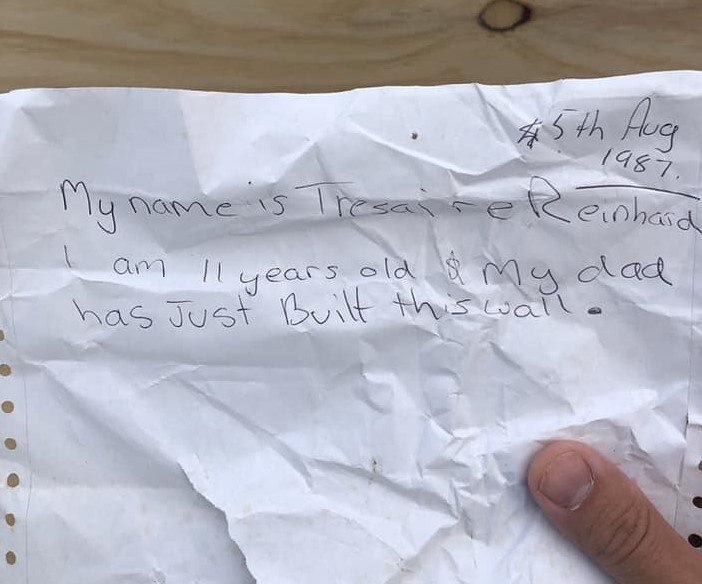 5th Aug
1987.
My name is Tresaire Reinhard
I am 11 years old & My dad
has Just Built this wall.